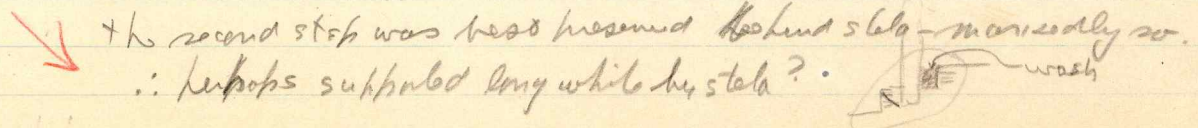 the second step was best preserved behind stela – markedly so.
∴ perhaps supported long while by stela?.
wash